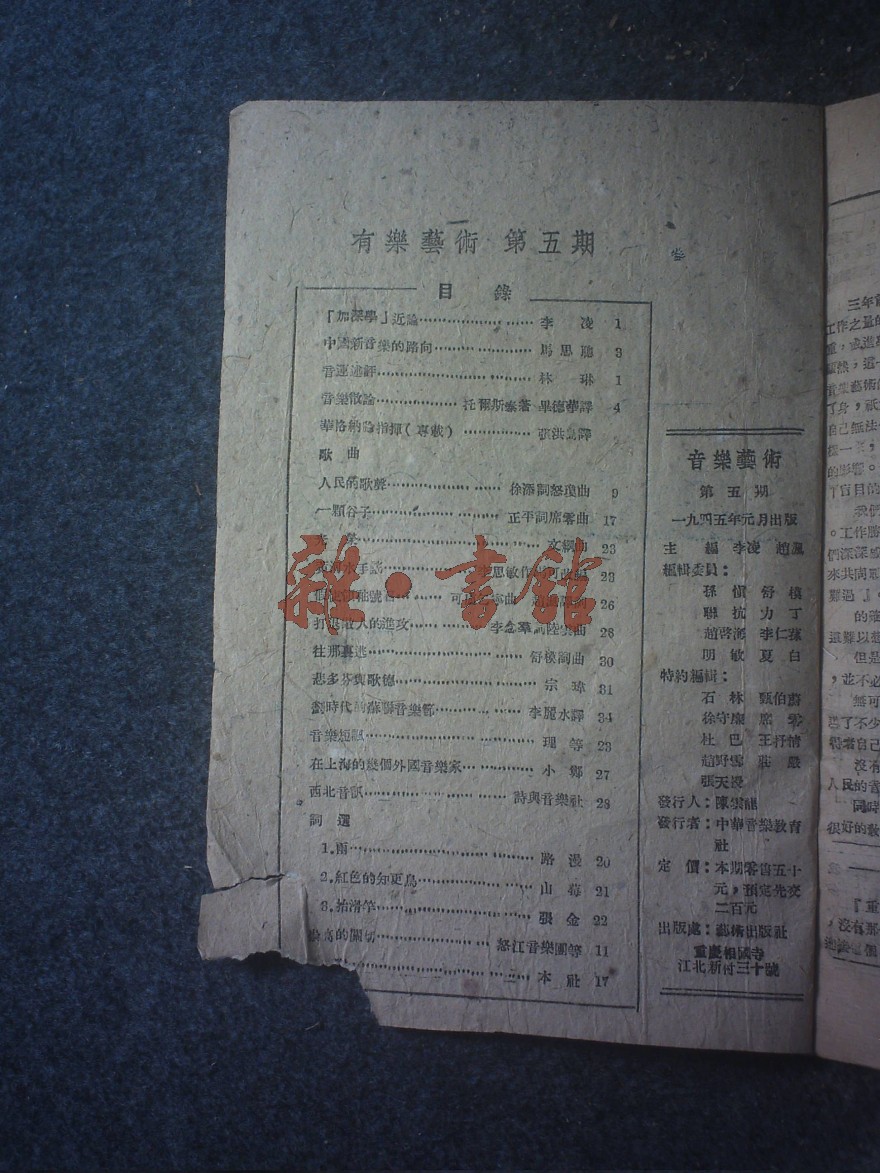 有樂藝術 第五期
目錄
「加深學」近論 李凌 1
中國新音樂的路向 馬思聰 3
音運述評 林琳 1
音樂散論 托爾斯泰著 畢德華譯 4
華格納論指揮(專載) 張洪島譯
歌曲
人民的歌聲 徐添詞怒瓊曲 9
一顆谷子 正平詞席零曲 17
文綱曲 23
李思敏作 23
26
打擊敵人的進攻 李念羣詞陸雲曲 28
往那裏逃 舒模詞曲 30
悲多芬與歌德 宗瑋 31
新時代的蘇聯音樂節 李麗水譯 34
音樂短訊 琨等 23
在上海的幾個外國音樂家 小鄭 27
西北音訊 詩與音樂社 28
詞選
1.雨 路漫 20
2.紅色的知更鳥 山莓 21
3.抬滑竿 張金 22
高的關切 怒江音樂團等 11
本社 17
音樂藝術
第五期
一九四五年元月出版
主編 李凌 趙渢
編輯委員:
孫慎 舒模
聯抗 力丁
趙啓海 李仁蓀
明敏 夏白
特約編輯:
石林 甄伯蔚
徐守廉 席零
杜巴 王抒情
趙野雲 莊嚴
張天授
發行人:陳雲龍
發行者:中華音樂教育
社
定價:本期零售五十
元,預定先交
二百元
出版處:藝術出版社
重慶相國寺
江北新村三十號
三年前
工作之量的
顯然,這一
音樂藝術的
了身,祇
自己無法
樣一來,
的影響。
丁盲目的
我們
。工作勝
們深深感
來共同
難過』。
的確
還難以想
但是
,並不必
無可
起了不少
沒有
人民的音
同時
很好的數
『重
,沒有那
雜·書館